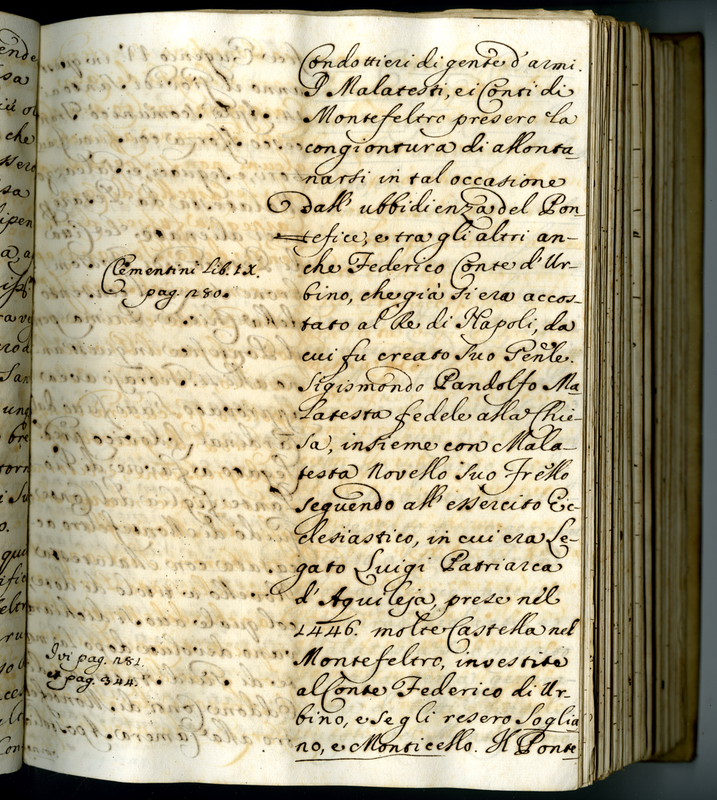 Condottieri di gente d'armi.
I Malatesti, e i Conti di
Montefeltro presero la
congiontura di allonta-
narsi in tal occasione
dall' ubbidienza del Pon-
tefice, e tra gli altri an-
che Federico Conte d'Ur-
bino, che già si era accos-
tato al Re di Napoli, da
cui fu creato suo Genle.
Sigismondo Pandolfo Ma-
latesta fedele alla Chie-
sa, insieme con Mala-
testa Novello suo frello
seguendo all' essercito Ec-
clesiastico, in cui era Le-
gato Luigi Patriarca
d'Aquileja, prese nel
1446. molte Castella nel
Montefeltro, investite
al Conte Federico di Ur-
bino, e se gli resero Soglia
no, e Monticello. Il Ponte
Clementini Lib. IX.
pag. 280.
Ivi pag. 281.
et pag. 344.